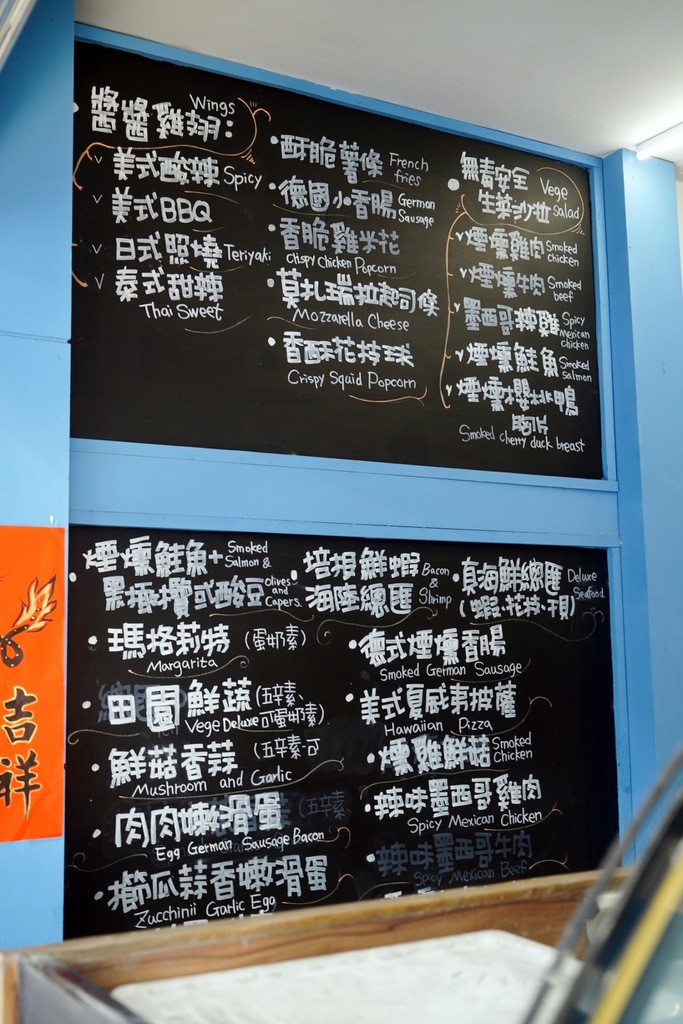 醬醬雞翅: Wings
美式酸辣 Spicy
美式BBQ
日式照燒 Teriyaki
泰式甜辣
Thai Sweet
酥脆薯條 French fries
德國小香腸 German Sausage
香脆雞米花
Crispy Chicken Popcorn
莫札瑞拉起司條
Mozzarella Cheese
香酥花枝球
Crispy Squid Popcorn
無毒安全
生菜沙拉 Vege Salad
煙燻雞肉 Smoked chicken
煙燻牛肉 Smoked beef
墨西哥辣雞 Spicy Mexican chicken
煙燻鮭魚 Smoked salmon
煙燻櫻桃鴨
胸片
Smoked cherry duck breast
煙燻鮭魚+ Smoked Salmon &
黑橄欖或酸豆 Olives and Capers
瑪格莉特 (蛋奶素)
Margarita
田園鮮蔬 (五辛素、
Vege Deluxe 可蛋奶素)
鮮菇香蒜 (五辛素可
Mushroom and Garlic
肉肉嫩滑蛋 (五辛素
Egg German Sausage Bacon
櫛瓜蒜香嫩滑蛋
Zucchinii Garlic Egg
培根鮮蝦 Bacon &
海陸總匯 Shrimp
真海鮮總匯 Deluxe Seafood
(蝦·花枝·干貝)
德式煙燻香腸
Smoked German Sausage
美式夏威夷披薩
Hawaiian Pizza
燻雞鮮菇 Smoked Chicken
辣味墨西哥雞肉
Spicy Mexican Chicken
辣味墨西哥牛肉
Spicy Mexican Beef
吉祥